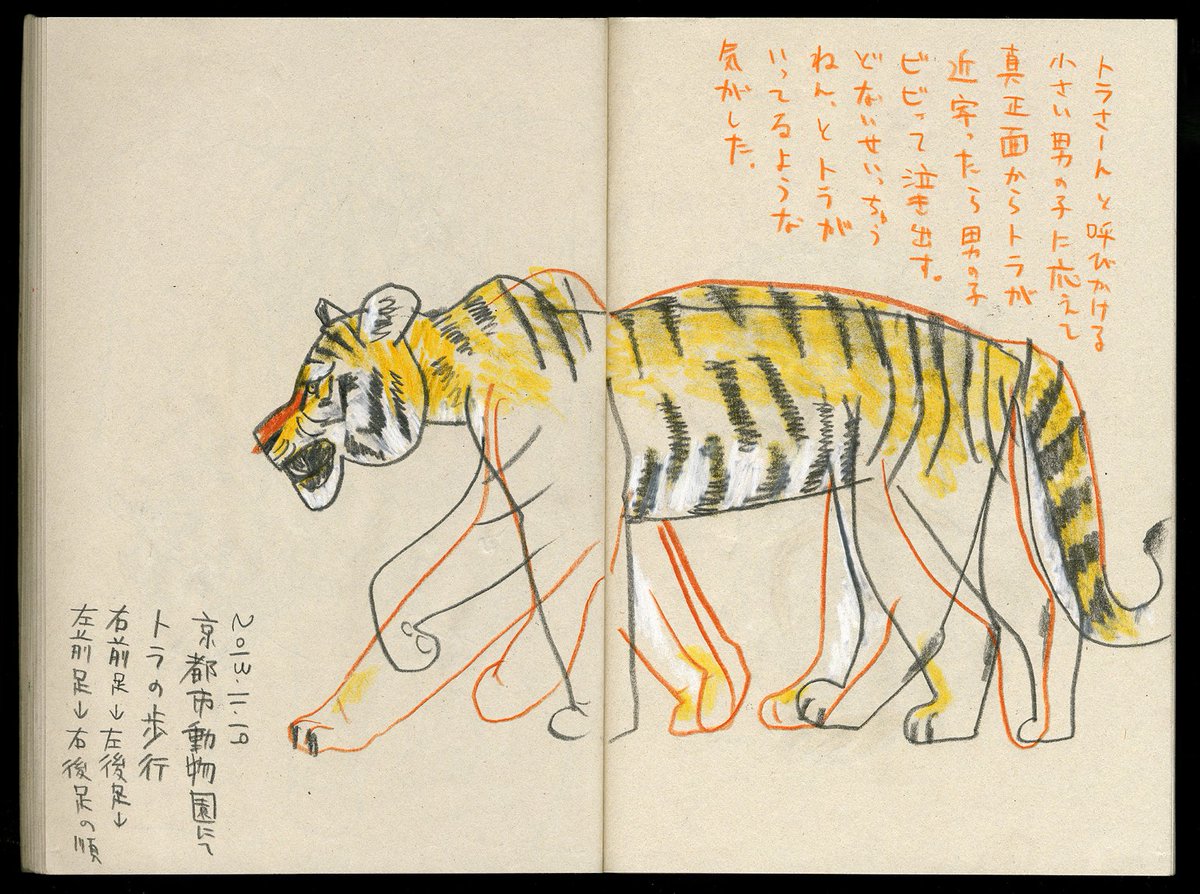 トラさーんと呼びかける
小さい男の子に応えて
真正面からトラが
近寄ったら男の子
ビビって泣き出す。
どないせいっちゅう
ねん、とトラが
いってるような
気がした。
2013.11.19
京都市動物園にて
トラの歩行
右前足↓左後足↓
左前足↓右後足の順